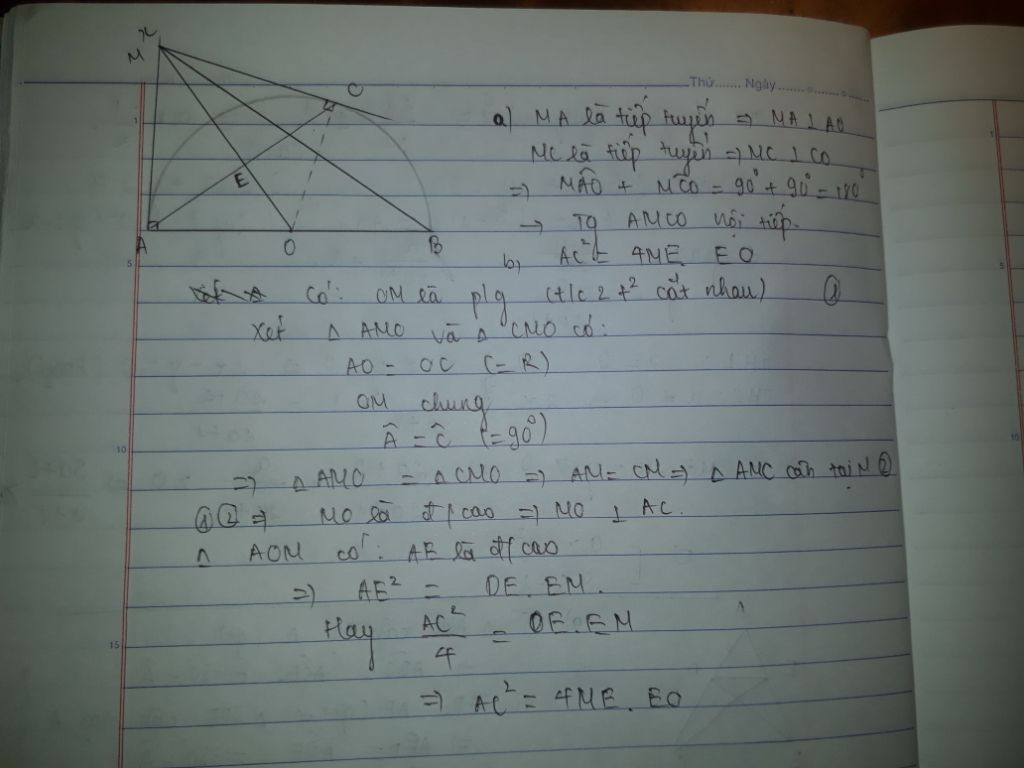 x
M
C
E
A
O
B
Thứ....... Ngày.......
1
5
10
15
1
5
10
a) MA là tiếp tuyến => MA ⊥ AO
MC là tiếp tuyến => MC ⊥ CO
=> MÂO + MĈO = 90° + 90° = 180°
-> Tg AMCO nội tiếp.
b, AC² = 4ME. EO
Có: OM là p/g (t/c 2 t² cắt nhau) ①
Xét △ AMO và △ CMO có:
AO = OC (= R)
OM chung
Â = Ĉ (= 90°)
=> △ AMO = △ CMO => AM = CM => △ AMC cân tại M ②
① ② => MO là đ/cao => MO ⊥ AC.
△ AOM có: AE là đ/cao
=> AE² = OE. EM.
Hay AC²/4 = OE. EM
=> AC² = 4ME. EO